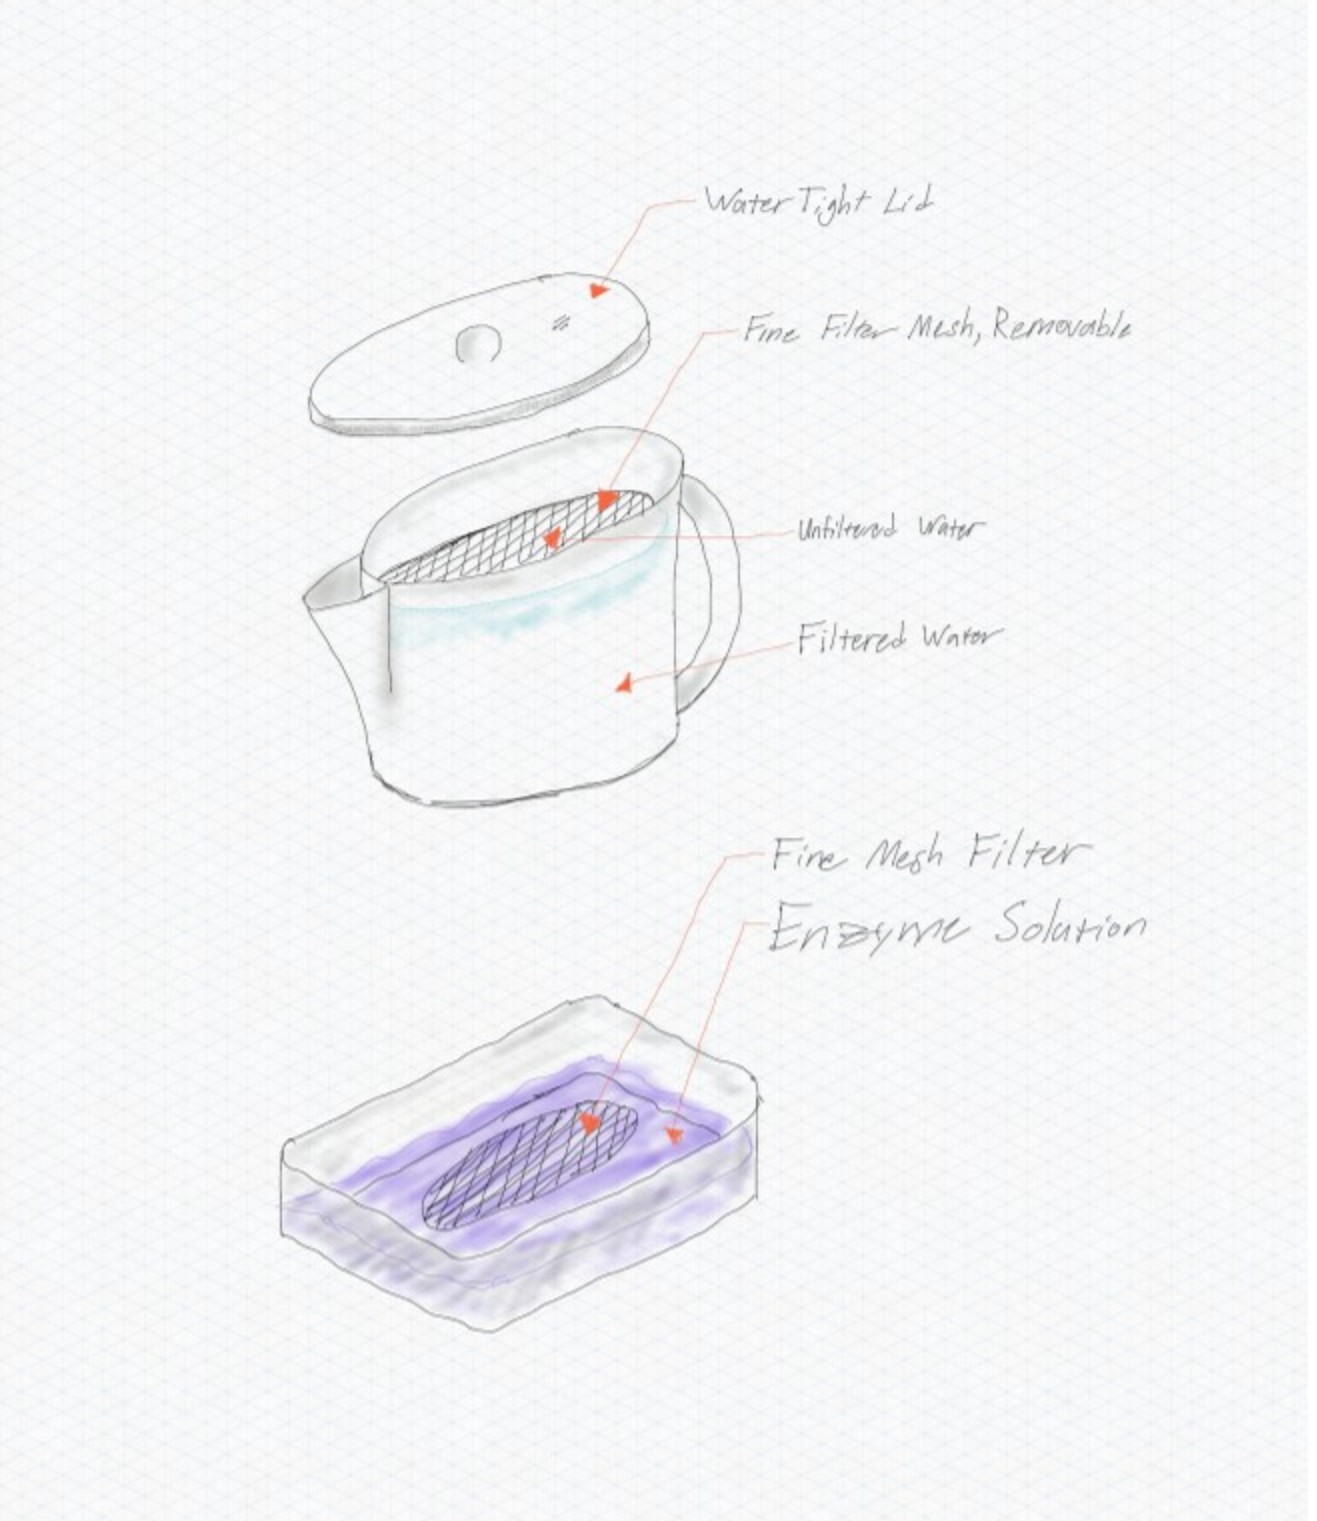 Water Tight Lid
Fine Filter Mesh, Removable
Unfiltered Water
Filtered Water
Fine Mesh Filter
Enzyme Solution